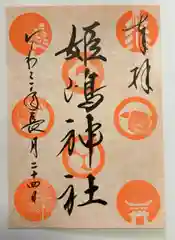 奉拝
姫嶋神社
れいわ三年長月二十四日